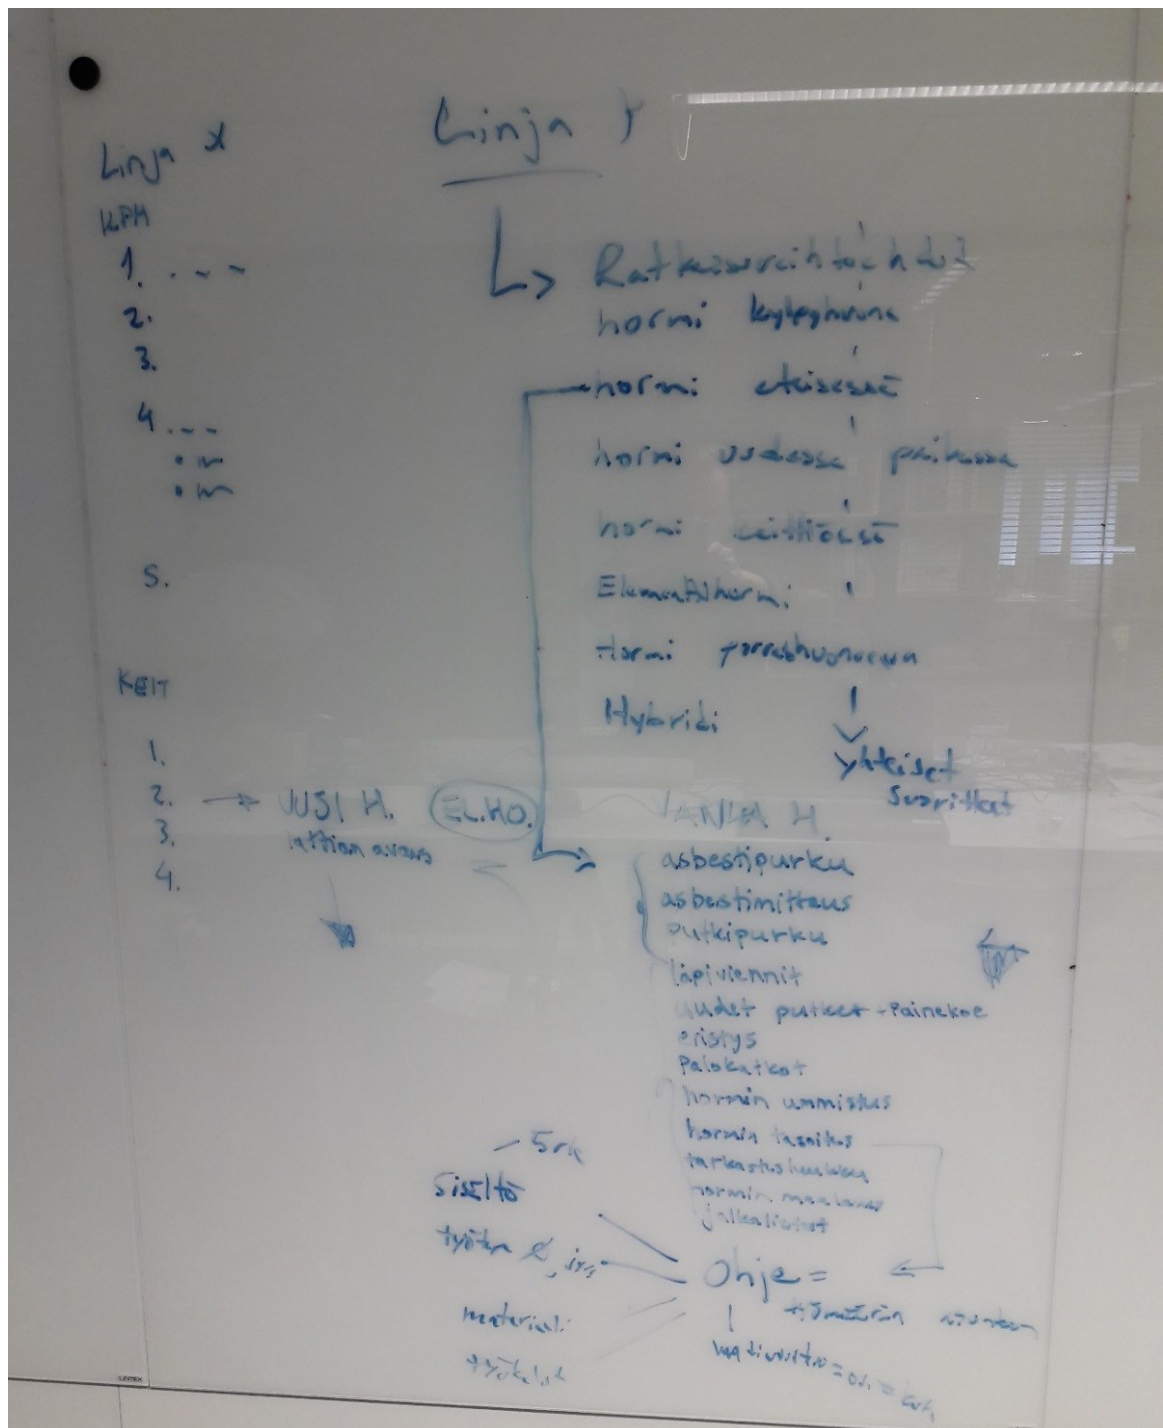 Linja X
KPH
1. - - -
2.
3.
4. - - -
5.
KEIT
1.
2. → UUSI H. EL.HO.
lattian avaus
3.
4.
Linja Y
↳ Ratkaisuvaihtoehdot
hormi kylpyhuone
hormi eteisessä
hormi uudessa paikassa
hormi keittiössä
Elementtihormi
Hormi porrashuoneessa
Hybridi
yhteiset
suoritteet
VANHA H.
asbestipurku
asbestimittaus
putkipurku
läpiviennit
uudet putket + Painekoe
eristys
Palokatkot
hormin ummistus
hormin tasoitus
tarkastusluukku
hormin maalaus
jalkalistat
Sisältö
Ohje =
materiaali
työkalut